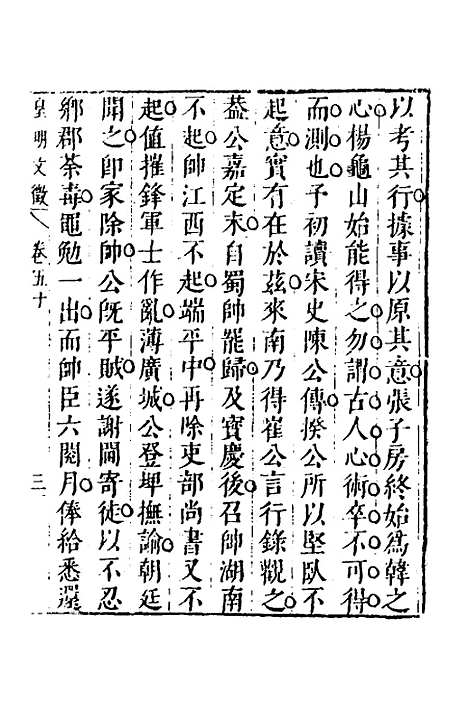 以考其行據事以原其意張子房終始爲韓之
心楊龜山始能得之勿謂古人心術卒不可得
而測也予初讀宋史陳公傳揆公所以堅臥不
起意實有在於兹來南乃得崔公言行錄觀之
葢公嘉定末自蜀帥罷歸及寳慶後召帥湖南
不起帥江西不起端平中再除吏部尚書又不
起值摧鋒軍士作亂薄廣城公登埤撫諭朝廷
聞之卽家除帥公旣平賊遂謝閫寄徒以不忍
鄉郡荼毒黽勉一出而帥臣六閱月俸給悉還
皇明文徵 卷五十 三